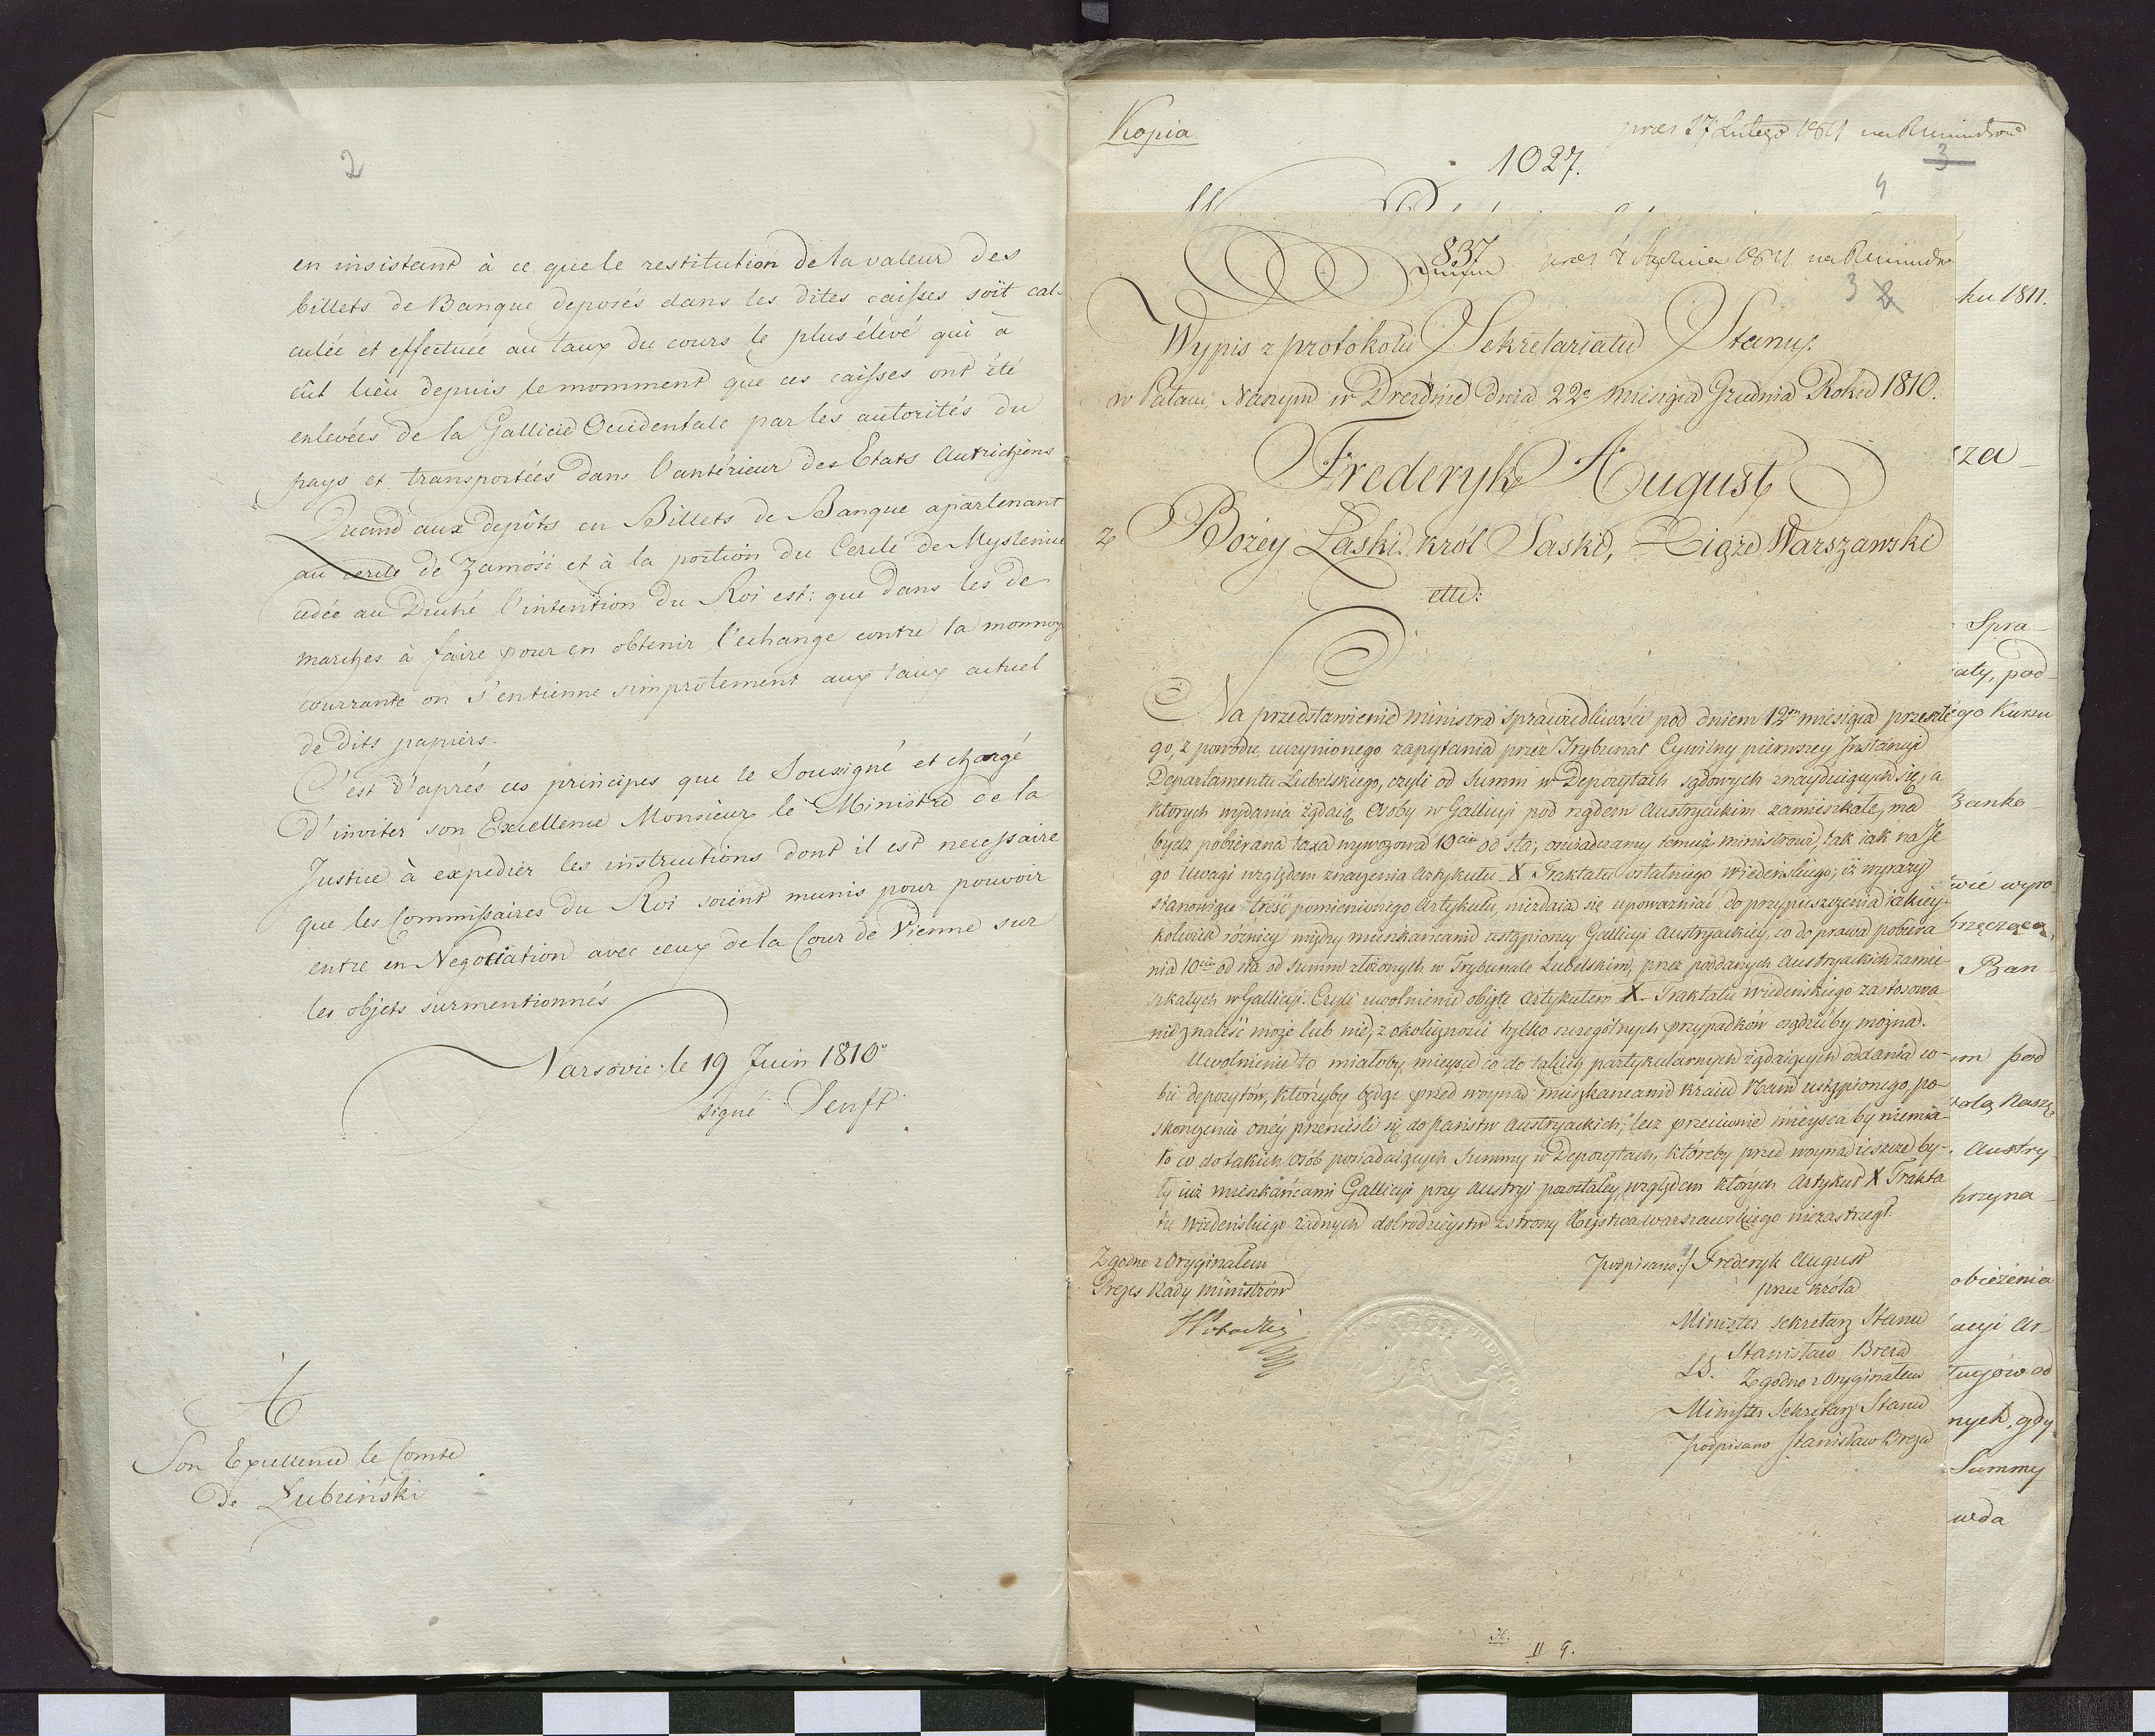 2
en insistant à ce que le restitution de la valeur des
billets de Banque deposés dans les dites caisses soit cal-
culée et effectuée au taux du cours le plus élevé qui a
eût lieu depuis le momment que ces caisses ont été
enlevées de la Gallicie Occidentale par les autorités du
pays et transportées dans l'antérieur des Etats Autrichiens
Quand aux depôts en Billets de Banque apartenant
au cercle de Zamość et à la portion du Cercle de Myslenice
cedée au Duché l'intention du Roi est: que dans les de
marches à faire pour en obtenir l'echange contre la monnoye
courrante on s'entienne simprôtement aux taux actuel
de dits papiers.
C'est d'aprés ces principes que le Soussigné et chargé
d'inviter son Excellence Monsieur le Ministre de la
Justice à expedier les instructions dont il est necessaire
que les Commissaires du Roi soient munis pour pouvoir
entre en Negociation avec ceux de la Cour de Vienne sur
les objets surmentionnés
Varsovie le 19 Juin 1810
signé Senft
A
Son Excellence le Comte
de Lubieński
Kopia
27 Lutego 1811
1027.
3
4
837
1811
3 2
Wypis z protokołu Sekretariatu Stanu.
w Pałacu Naszym w Dreźnie dnia 22º miesiąca Grudnia Roku 1810.
Frederyk August
z Bożey Łaski król Saski, Xiąże Warszawski
etc:
Na przedstawienie ministra sprawiedliwości pod dniem 12m miesiąca przeszłe
go, z powodu uczynionego zapytania przez Trybunał Cywilny pierwszey Instancyi
Departamentu Lubelskiego, czyli od Summ w Depozytach sądowych znayduiących się, a
których wydania żądaią osoby w Gallicyi pod rządem Austryackim zamieszkałe, ma
bydz pobierana taxa wywozowa 10cio od sta; oświadczamy temuż ministrowi, tak iak na Je
go uwagi względem znaczenia Artykułu X Traktatu ostatniego Wiedeńskiego; iż wyrazy
stanowiące treść pomienionego Artykułu, niezdaia się upoważniać do przypuszczenia iakiey-
kolwiek różnicy między mieszkańcami ustąpioney Gallicyi Austryackiey, co do prawa pobiera
nia 10ciu od sta od Summ złożonych w Trybunale Lubelskim, przez poddanych Austryackich zamie
szkałych w Gallicyi. Czyli uwolnienie obięte Artykułem X. Traktatu Wiedeńskiego zastosowa
nie znaleść może lub nie, z okoliczności tylko szczególnych przypadków osądzić by można.
Uwolnienie to miałoby mieysce co do takich partykularnych żądaiących oddania so-
bie depozytów, którzyby będąc przed woyną mieszkańcami kraiu Nam ustąpionego, po
skończeniu oney przenieśli się do państw Austryackich; lecz przeciwnie mieysca by niemia
ło co do takich osób posiadaiących Summy w Depozytach, któreby przed woyną ieszcze by-
ły iuż mieszkańcami Gallicyi przy Austryi pozostałey, względem których Artykuł X Trakta
tu Wiedeńskiego żadnych dobrodzieystw z strony Xięstwa Warszawskiego niezastrzegł.
Zgodno z Oryginałem
Prezes Rady Ministrów
podpisano:/ Frederyk August
przez króla
Minister Sekretarz Stanu
Stanisław Breza
LS. Zgodno z Oryginałem
Minister Sekretarz Stanu
podpisano Stanisław Breza
II 9.
ku 1811.
sza
Spra-
iały, pod-
go Kursu
Banko-
twie wypo
brzęczącą,
Ban
m pod
wolą Naszą
Austry-
przyna-
obieżenia
acyi Ar-
tucyów od
nych, gdy
Summy
uda